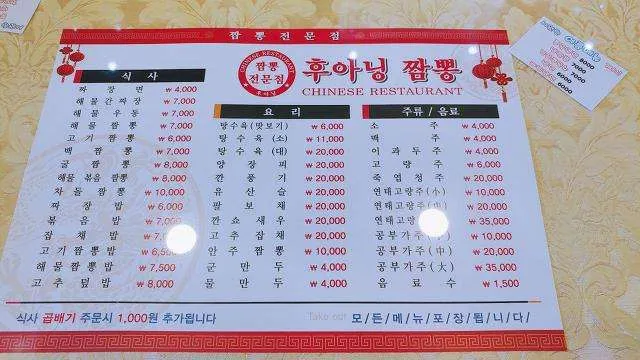 짬뽕전문점
CHINESE RESTAURANT
짬뽕
전문점
후아닝
후아닝 짬뽕
CHINESE RESTAURANT
식 사
짜 장 면 ₩ 4,000
해물간짜장 ₩ 7,000
해 물 우 동 ₩ 7,000
해 물 짬 뽕 ₩ 7,000
고 기 짬 뽕 ₩ 6,000
백 짬 뽕 ₩ 7,000
굴 짬 뽕 ₩ 8,000
해물 볶음 짬뽕 ₩ 8,000
차 돌 짬 뽕 ₩ 10,000
짜 장 밥 ₩ 6,000
볶 음 밥 ₩ 7,000
잡 채 밥 ₩ 7,
고기짬뽕밥 ₩ 6,500
해물짬뽕밥 ₩ 7,500
고 추 덮 밥 ₩ 8,000
요 리
탕수육(맛보기) ₩ 6,000
탕 수 육 (소) ₩ 11,000
탕 수 육 (대) ₩ 20,000
양 장 피 ₩ 20,000
깐 풍 기 ₩ 20,000
유 산 슬 ₩ 20,000
팔 보 채 ₩ 20,000
깐 쇼 새 우 ₩ 20,000
고 추 잡 채 ₩ 20,000
안 주 짬 뽕 ₩ 10,000
군 만 두 ₩ 4,000
물 만 두 ₩ 4,000
주류 / 음료
소 주 ₩ 4,000
맥 주 ₩ 4,000
이 과 두 주 ₩ 4,000
고 량 주 ₩ 6,000
죽 엽 청 주 ₩ 20,000
연태고량주(小) ₩ 10,000
연태고량주(中) ₩ 20,000
연태고량주 ₩ 35,000
공부가주(小) ₩ 10,000
공부가주(中) ₩ 20,000
공부가주(大) ₩ 35,000
음 료 수 ₩ 1,500
식사 곱배기 주문시 1,000원 추가됩니다
Take out 모/든/메/뉴/포/장/됩/니/다/
8000
7000
7000
6000
6000